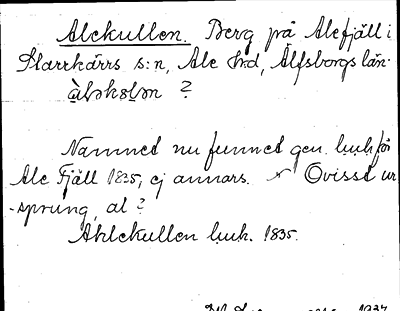 Alekullen. Berg på Alefjäll i
Starrkärrs s:n, Ale hd, Älfsborgs län.
àləkɵlən ?
Namnet nu funnet gen. luk för
Ale Fjäll 1835, ej annars. Ovisst ur
-sprung, al?
Ahlekullen luk. 1835.
1937